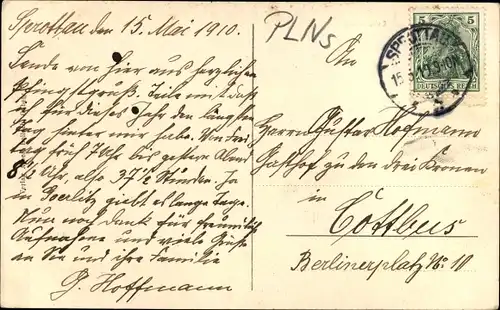 Sprottau den 15. Mai 1910.
Sende von hier aus herzlichen
Pfingstgruß. Teile mit, daß
ich für dieses Jahr den längsten
Tag hinter mir habe. Von Frei
tag früh 7 Uhr bis gestern Abend
8 1/2 Uhr, also 37 1/2 Stunden. Ja
in Goerlitz giebt es lange Tage.
Nun noch Dank für freundlich
Aufnahme und viele Grüße
an Sie und ihre Familie
G. Hoffmann
PLNs
An
5 5
DEUTSCHES REICH
SPROTTAU
15.5.10.9-10N.
Herrn Gustav Hofmann
Gasthof zu den drei Kronen
in
Cottbus
Berlinerplatz No. 10